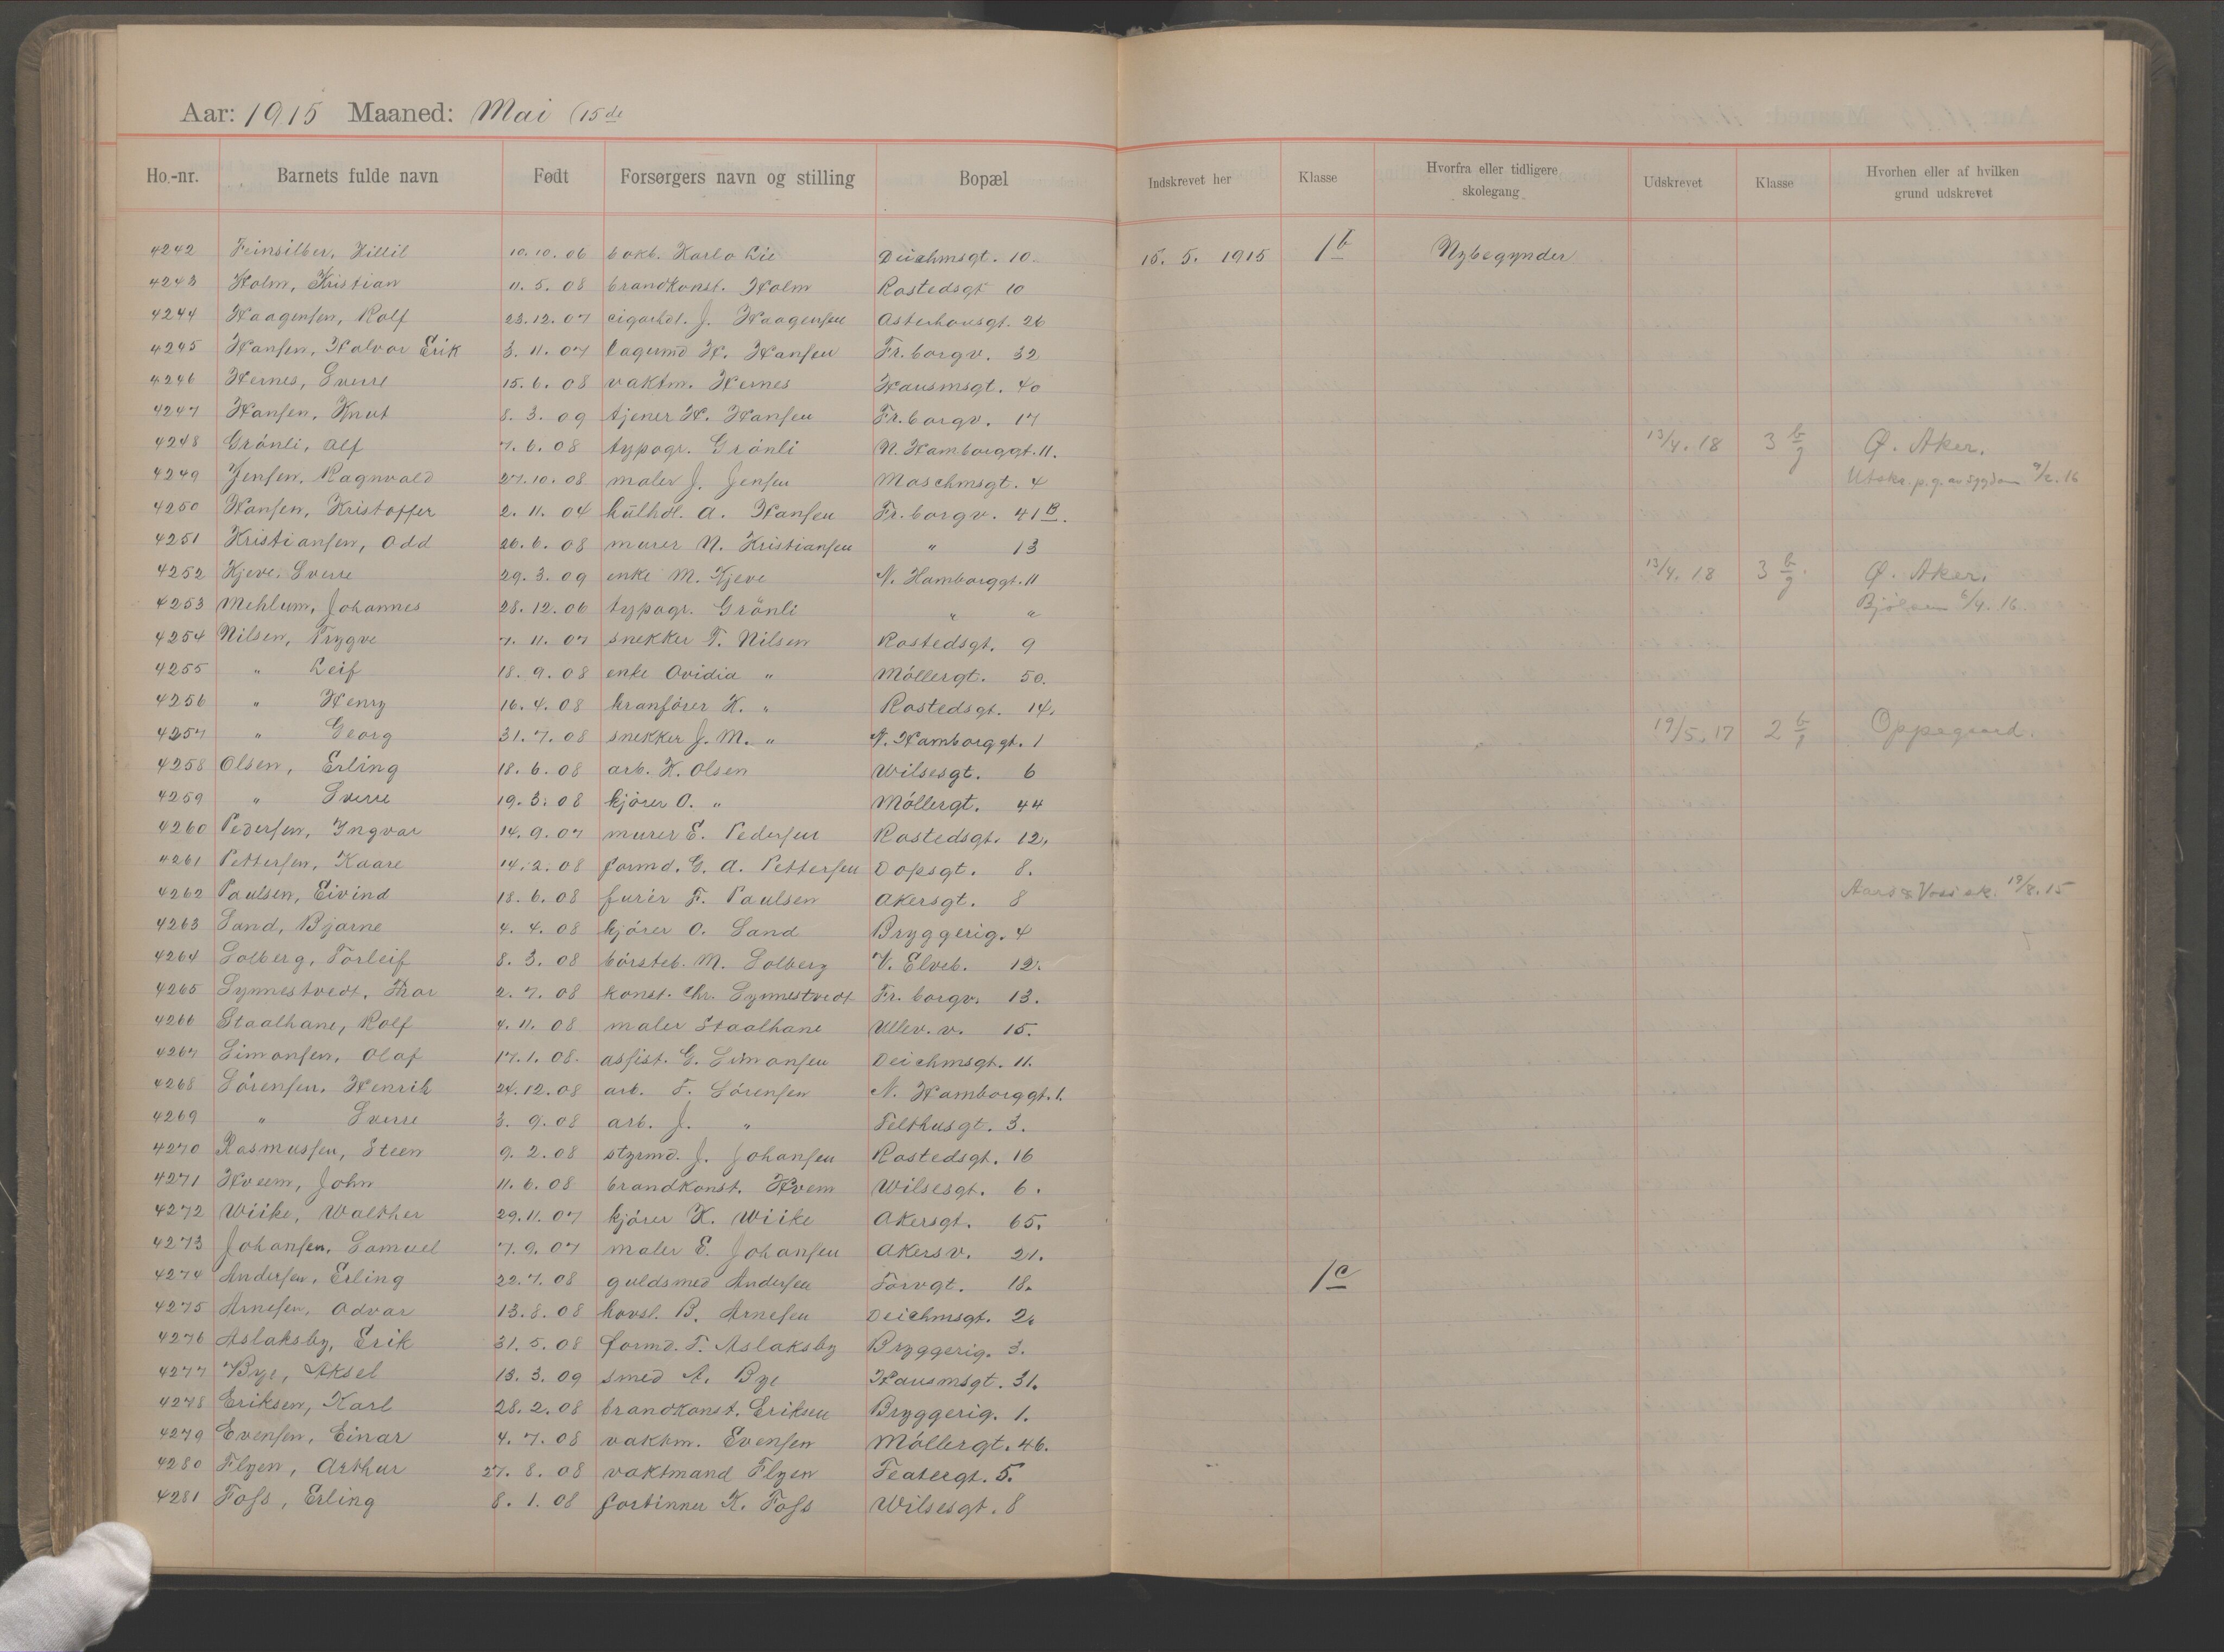 Aar: 1915 Maaned: Mai (15de
Ho.-nr. Barnets fulde navn Født Forsørgers navn og stilling Bopæl Indskrevet her Klasse Hvorfra eller tidligere skolegang Udskrevet Klasse Hvorhen eller af hvilken grund udskrevet
4242 Feinsilber, Hillil 10.10.06 bokb. Karlo Lie Deichmsgt. 10. 15. 5. 1915 1b Nybegynder
4243 Holm, Kristian 11.5.08 brandkonst. Holm Rostedsgt 10
4244 Haagensen, Rolf 23.12.07 cigarhdl. J. Haagensen Osterhousgt. 26
4245 Hansen, Halvor Erik 3.11.07 lagermd H. Hansen Fr.borgv. 32
4246 Hernes, Sverre 15.6.08 vaktm. Hernes Hausmsgt. 40
4247 Hansen, Knut 8.3.09 tjener H. Hansen Fr.borgv. 17
4248 Grönli, Alf 7.6.08 typogr. Grönli N. Hamborggt. 11. 13/4.18 3 b/g Ø. Aker.
4249 Jensen, Ragnvald 27.10.08 maler J. Jensen Maschmsgt. 4 Utskr. p.g. av sygdom 9/2.16
4250 Hansen, Kristoffer 2.11.04 kulhdl. A. Hansen Fr.borgv. 41B.
4251 Kristiansen, Odd 26.6.08 murer N. Kristiansen " 13
4252 Kjeve, Sverre 29.3.09 enke M. Kjeve N. Hamborggt. 11 13/4.18 3 b/g. Ø. Aker.
4253 Mehlum, Johannes 28.12.06 typogr. Grönli " " Bjölsen 6/4.16.
4254 Nilsen, Trygve 7.11.07 snekker T. Nilsen Rostedsgt. 9
4255 " Leif 18.9.08 enke Ovidia " Möllergt. 50.
4256 " Henry 16.4.08 kranförer K. " Rostedsgt. 14.
4257 " Georg 31.7.08 snekker J. M. " N. Hamborggt. 1 19/5.17 2 b/g Oppegaard.
4258 Olsen, Erling 18.6.08 arb. K. Olsen Wilsesgt. 6
4259 " Sverre 19.3.08 kjörer O. " Möllergt. 44
4260 Pedersen, Ingvar 14.9.07 murer E. Pedersen Rostedsgt. 12.
4261 Pettersen, Kaare 14.2.08 formd. G. A. Pettersen Dopsgt. 8.
4262 Paulsen, Eivind 18.6.08 furér F. Paulsen Akersgt. 8 Aars & Voss sk. 19/8.15
4263 Sand, Bjarne 4.4.08 kjörer O. Sand Bryggerig. 4
4264 Solberg, Torleif 8.3.08 börsteb. M. Solberg V. Elveb. 12.
4265 Synnestvedt, Thor 2.7.08 konst. Chr. Synnestvedt Fr.borgv. 13.
4266 Staalhane, Rolf 4.11.08 maler Staalhane Ullev.v. 15.
4267 Simonsen, Olaf 17.1.08. assist. G. Simonsen Deichmsgt. 11.
4268 Sörensen, Henrik 24.12.08 arb. F. Sörensen N. Hamborggt. 1.
4269 " Sverre 3.9.08 arb. J. " Telthusgt. 3.
4270 Rasmussen, Steen 9.2.08 styrmd. J. Johansen Rostedsgt. 16
4271 Hveem, John 11.6.08 brandkonst. Hvem Wilsesgt. 6.
4272 Wiike, Walther 29.11.07 kjörer K. Wiike Akersgt. 65.
4273 Johansen, Samuel 7.9.07 maler E. Johansen Akersv. 21.
4274 Andersen, Erling 22.7.08 guldsmed Andersen Torvgt. 18. 1c
4275 Arnesen, Odvar 13.8.08 hovsl. B. Arnesen Deichmsgt. 2.
4276 Aslaksby, Erik 31.5.08 formd. T. Aslaksby Bryggerig. 3.
4277 Bye, Aksel 13.3.09 smed A. Bye Hausmsgt. 31.
4278 Eriksen, Karl 28.2.08 brandkonst. Eriksen Bryggerig. 1.
4279 Evensen, Einar 4.7.08 vaktm. Evensen Möllergt. 46.
4280 Flyen, Arthur 27.8.08 vaktmand Flyen Teatergt. 5.
4281 Foss, Erling 8.1.08 fortinner K. Foss Wilsesgt. 8